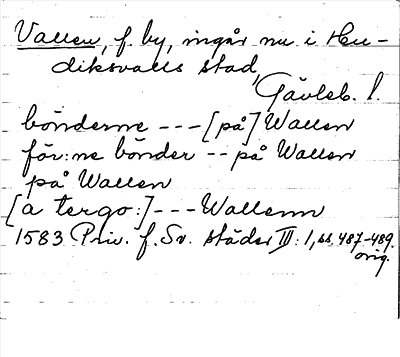 Vallen, f. by, ingår nu i Hu-
diksvalls stad,
Gävleb. l.
bönderne --- [på] Wallen
för:ne bönder -- på Wallen
på Wallen
[a tergo:] --- Wallenn
1583 Priv. f. Sv. städer III: 1, ss. 487-489.
orig.